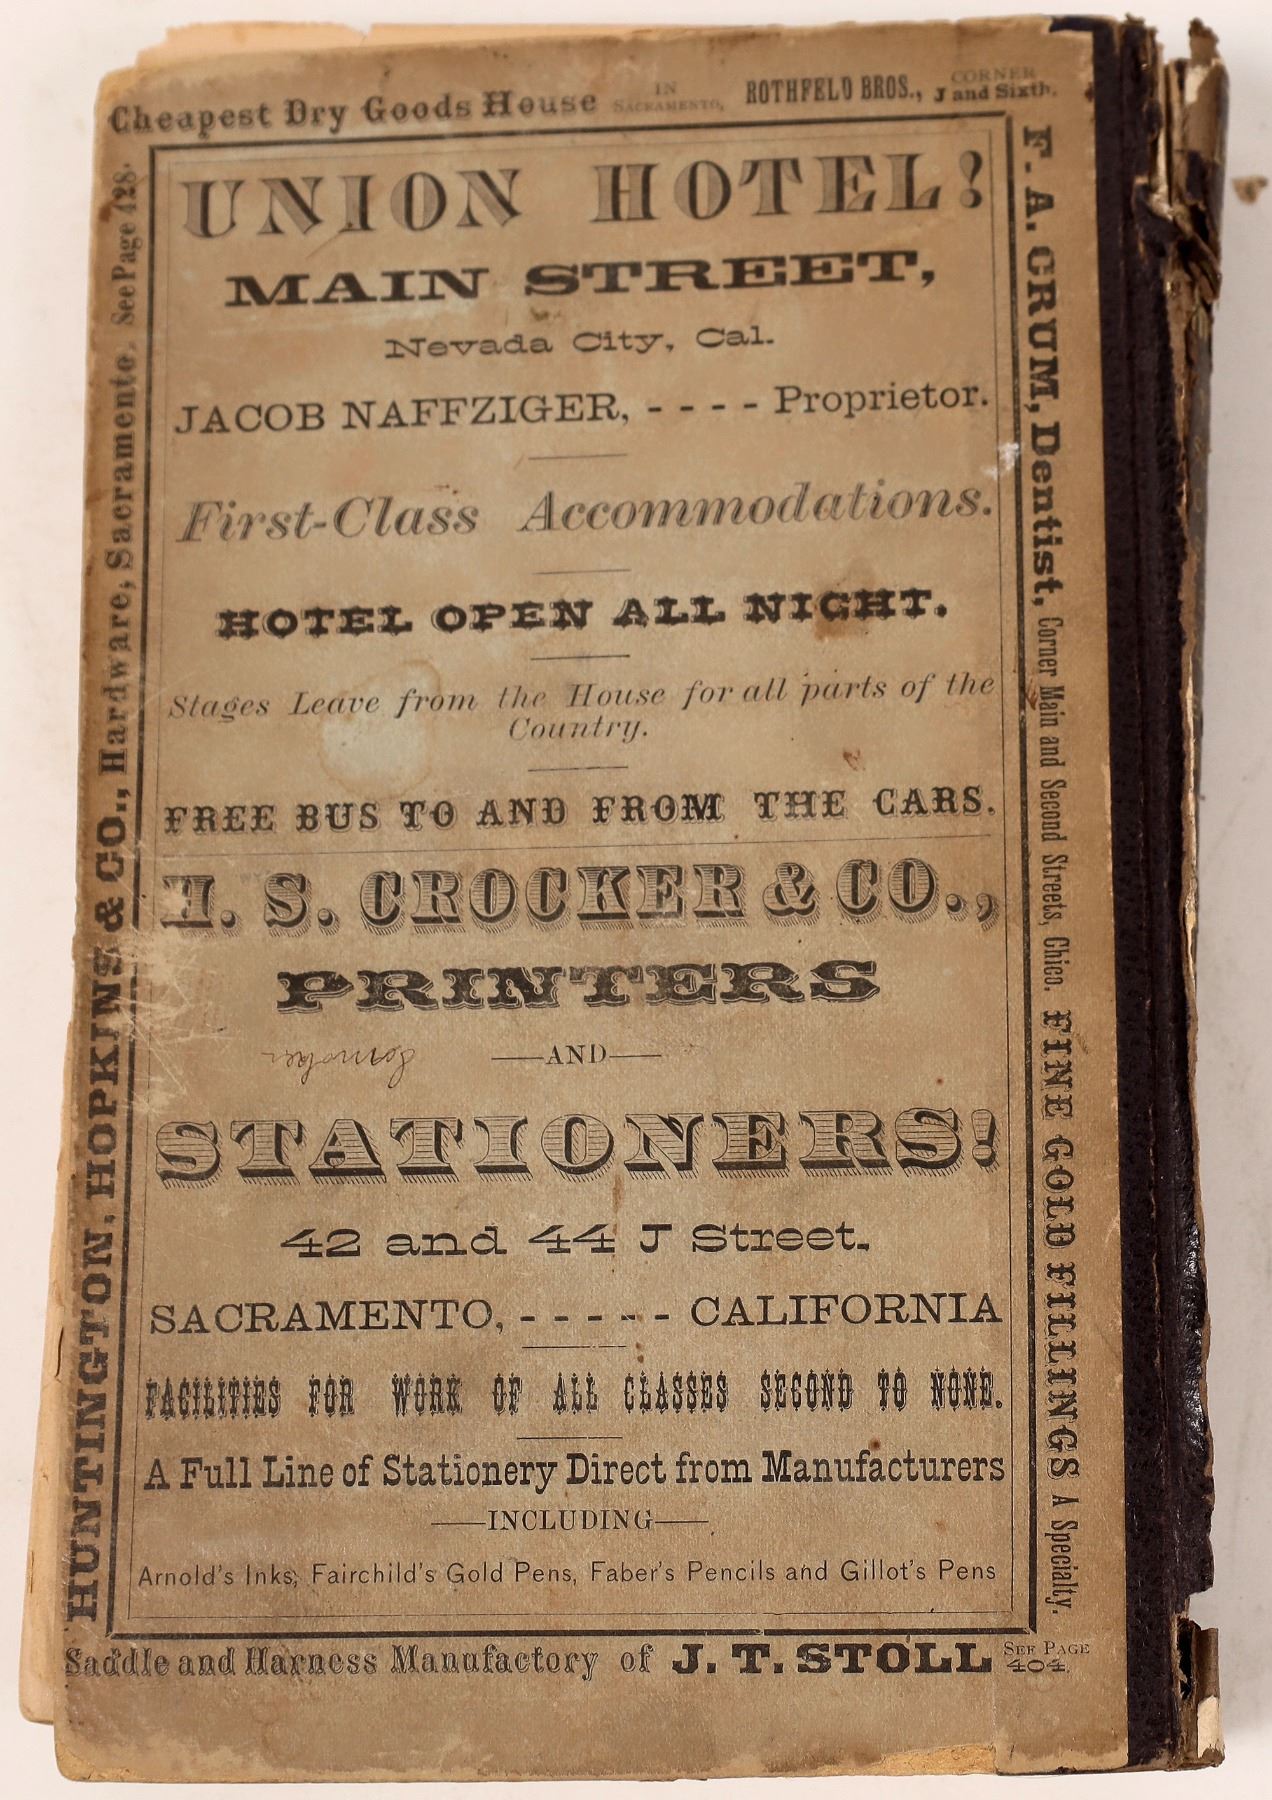 Cheapest Dry Goods House IN SACRAMENTO, ROTHFELD BROS., CORNER J and Sixth.
HUNTINGTON, HOPKINS & CO., Hardware, Sacramento. See Page 428.
UNION HOTEL!
MAIN STREET,
Nevada City, Cal.
JACOB NAFFZIGER, - - - - Proprietor.
First-Class Accommodations.
HOTEL OPEN ALL NIGHT.
Stages Leave from the House for all parts of the
Country.
FREE BUS TO AND FROM THE CARS.
H. S. CROCKER & CO.,
PRINTERS
—AND—
STATIONERS!
42 and 44 J Street.
SACRAMENTO, - - - - - CALIFORNIA
FACILITIES FOR WORK OF ALL CLASSES SECOND TO NONE.
A Full Line of Stationery Direct from Manufacturers
—INCLUDING—
Arnold's Inks, Fairchild's Gold Pens, Faber's Pencils and Gillot's Pens
F. A. CRUM, Dentist, Corner Main and Second Streets, Chico. FINE GOLD FILLINGS A Specialty.
Saddle and Harness Manufactory of J. T. STOLL SEE PAGE 404.